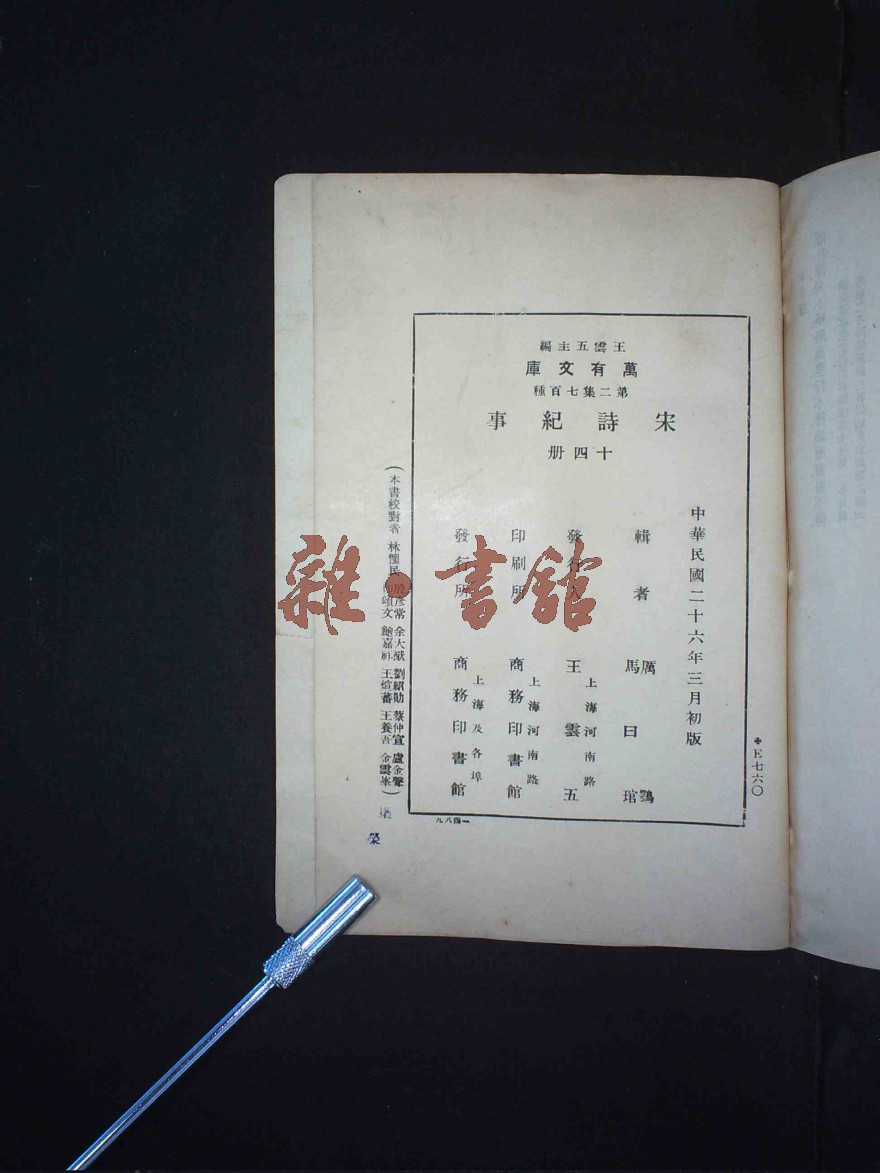 王雲五主編
萬有文庫
第二集七百種
宋詩紀事
十四册
中華民國二十六年三月初版
輯者 厲鶚 馬曰琯
發行人 王雲五
上海河南路
印刷所 商務印書館
上海河南路
發行所 商務印書館
上海及各埠
(本書校對者 林懷民 殷彥常 余大猷 劉紹勛 蔡仲宣 盧金聲
頌文 鮑嘉祥 王煊蕃 王養吾 金雲峯)
E七六〇
一四八九
雜·書館